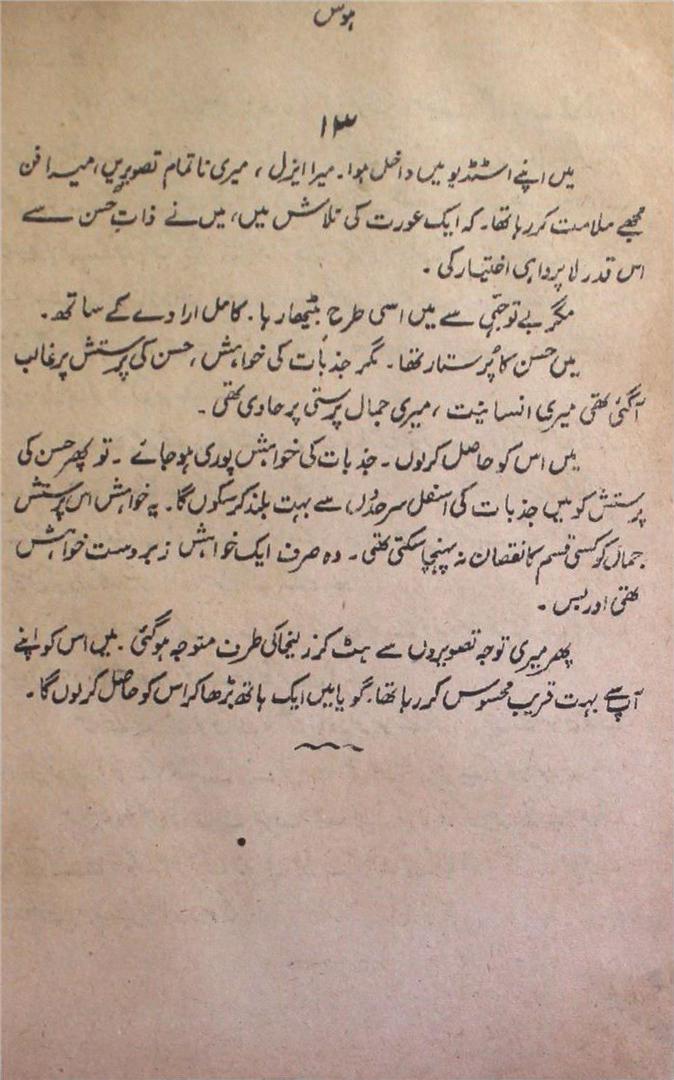 ہوس
۱۳
میں اپنے اسٹڈیو میں داخل ہوا۔ میرا ایزل، میری ناتمام تصویریں، میرا فن
مجھے ملامت کر رہا تھا۔ کہ ایک عورت کی تلاش میں، میں نے ذاتِ حسن سے
اس قدر لا پرواہی اختیار کی۔
مگر بے توجہی سے میں اسی طرح بیٹھا رہا۔ کامل ارادے کے ساتھ۔
میں حسن کا پرستار تھا۔ مگر جذبات کی خواہش، حسن کی پرستش پر غالب
آگئی تھی میری انسانیت، میری جمال پرستی پر حاوی تھی۔
میں اس کو حاصل کرلوں۔ جذبات کی خواہش پوری ہو جائے۔ تو پھر حسن کی
پرستش کو میں جذبات کی اسفل سرحدوں سے بہت بلند کر سکوں گا۔ یہ خواہش اس پرستش
جمال کو کسی قسم کا نقصان نہ پہنچا سکتی تھی۔ وہ صرف ایک خواہش زبردست خواہش
تھی اور بس۔
پھر میری توجہ تصویروں سے ہٹ کر زلیخا کی طرف متوجہ ہوگئی۔ میں اس کو اپنے
آپ سے بہت قریب محسوس کر رہا تھا۔ گویا میں ایک ہاتھ بڑھا کر اس کو حاصل کرلوں گا۔